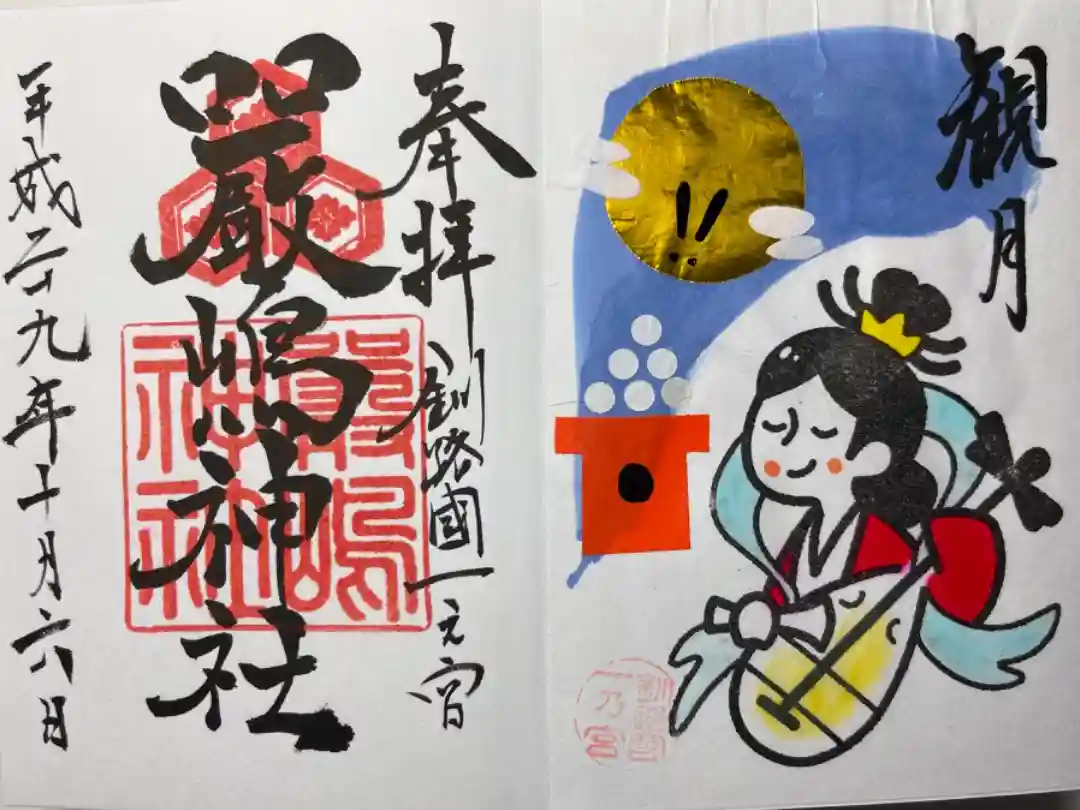 観月
釧路國
一乃宮
奉拝
釧路國一之宮
嚴嶋神社
嚴嶋
神社
平成二十九年十月六日